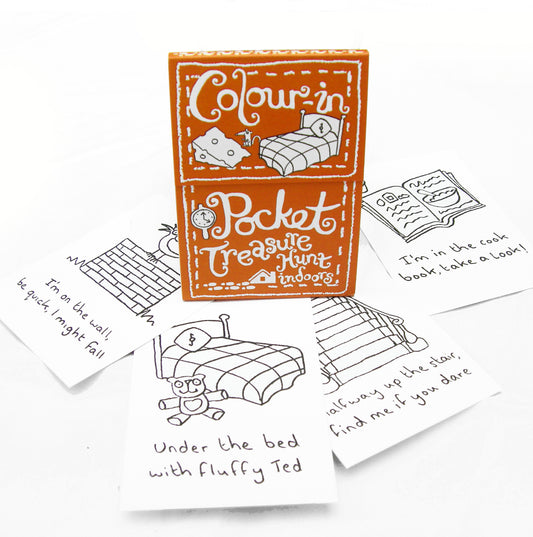 Colour-in
Pocket
Treasure
Hunt
indoors
I'm on the wall,
be quick, I might fall
I'm in the cook
book, take a look!
halfway up the stair,
find me, if you dare
Under the bed
with fluffy Ted